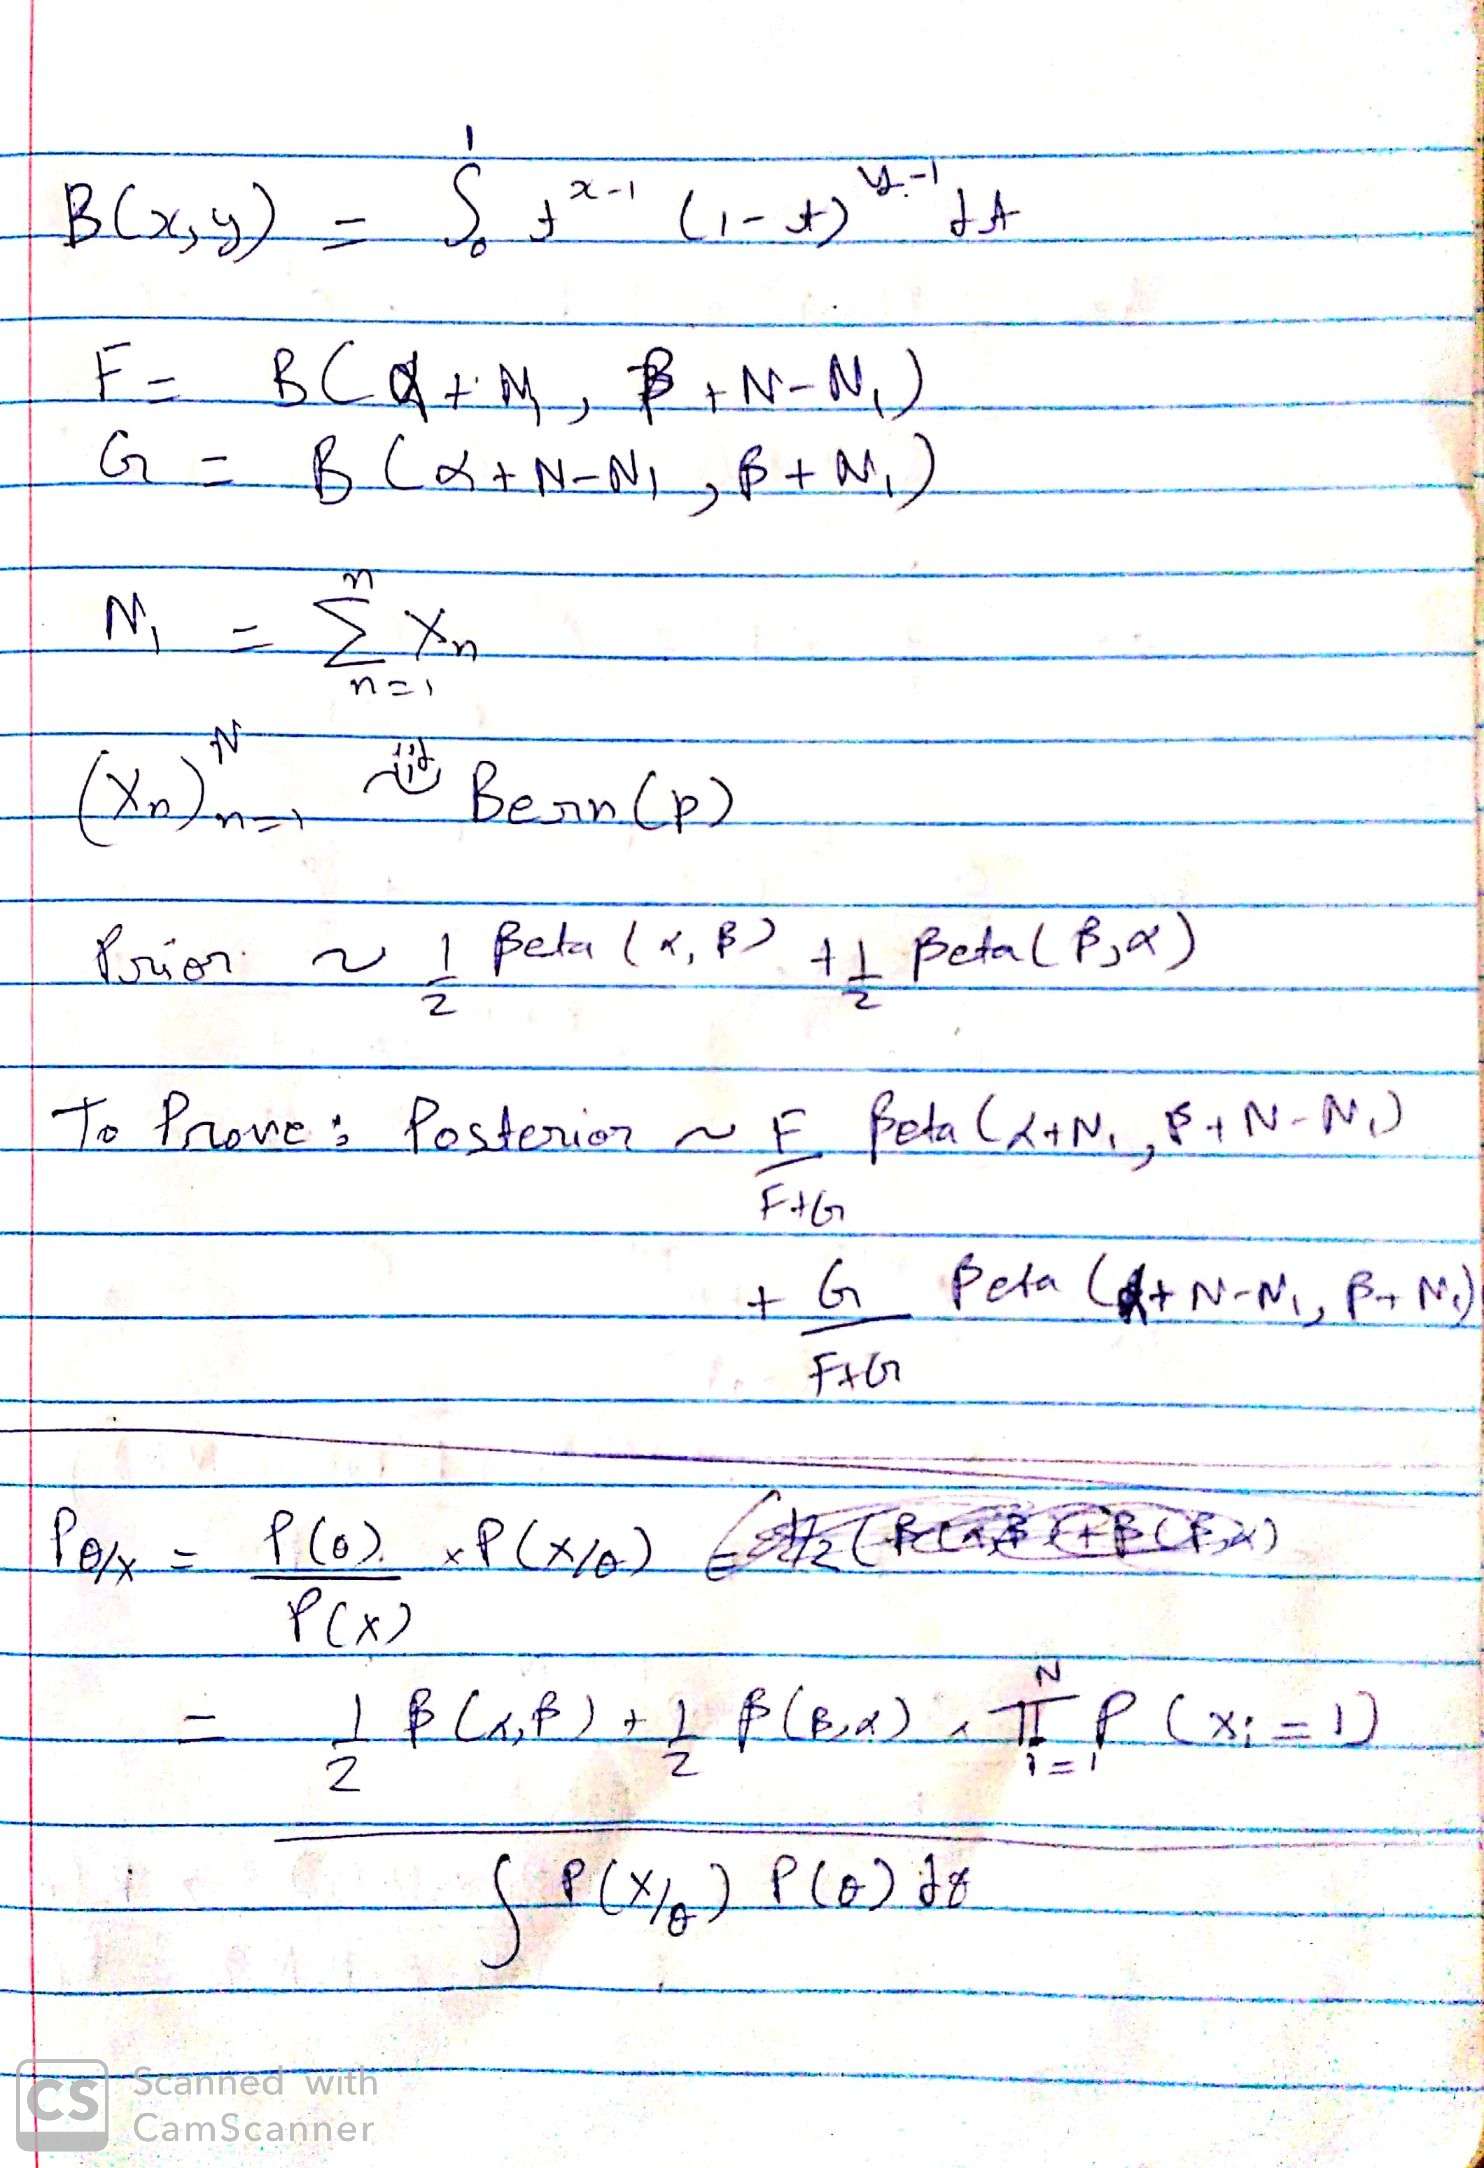 B(x,y) = ∫₀¹ t^(x-1) (1-t)^(y-1) dt
F = B(α+N₁, β+N-N₁)
G = B(α+N-N₁, β+N₁)
N₁ = Σ_{n=1}^{n} Xn
(Xn)_{n=1}^{N} ~ iid Bern(p)
Prior ~ 1/2 Beta(α,β) + 1/2 Beta(β,α)
To Prove: Posterior ~ F/(F+G) Beta(α+N₁, β+N-N₁)
+ G/(F+G) Beta(α+N-N₁, β+N₁)
P_{θ/X} = P(θ)/P(X) × P(X/θ)
= (1/2 β(α,β) + 1/2 β(β,α) × Π_{i=1}^{N} P(xi=1)) / ∫ P(X/θ) P(θ) dθ
CS Scanned with
CamScanner